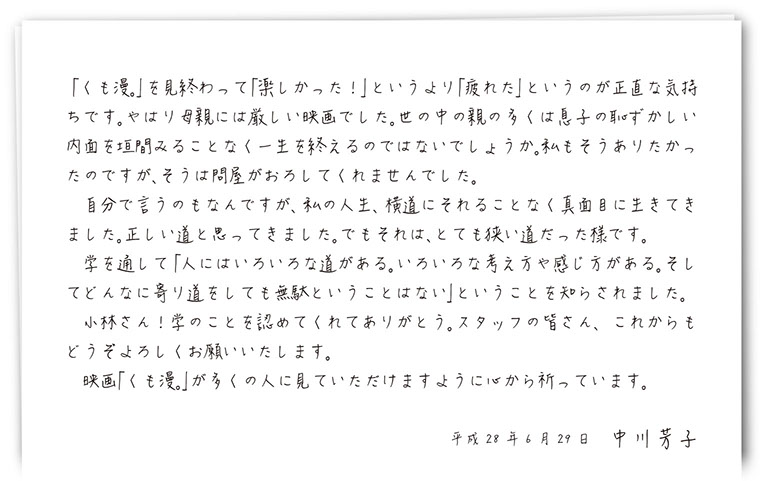 「くも漫。」を見終わって「楽しかった！」というより「疲れた」というのが正直な気持
ちです。やはり母親には厳しい映画でした。世の中の親の多くは息子の恥ずかしい
内面を垣間みることなく一生を終えるのではないでしょうか。私もそうありたかっ
たのですが、そうは問屋がおろしてくれませんでした。
自分で言うのもなんですが、私の人生、横道にそれることなく真面目に生きてき
ました。正しい道と思ってきました。でもそれは、とても狭い道だった様です。
学を通して「人にはいろいろな道がある。いろいろな考え方や感じ方がある。そし
てどんなに寄り道をしても無駄ということはない」ということを知らされました。
小林さん！学のことを認めてくれてありがとう。スタッフの皆さん、これからも
どうぞよろしくお願いいたします。
映画「くも漫。」が多くの人に見ていただけますように心から祈っています。
平成28年6月29日　中川芳子